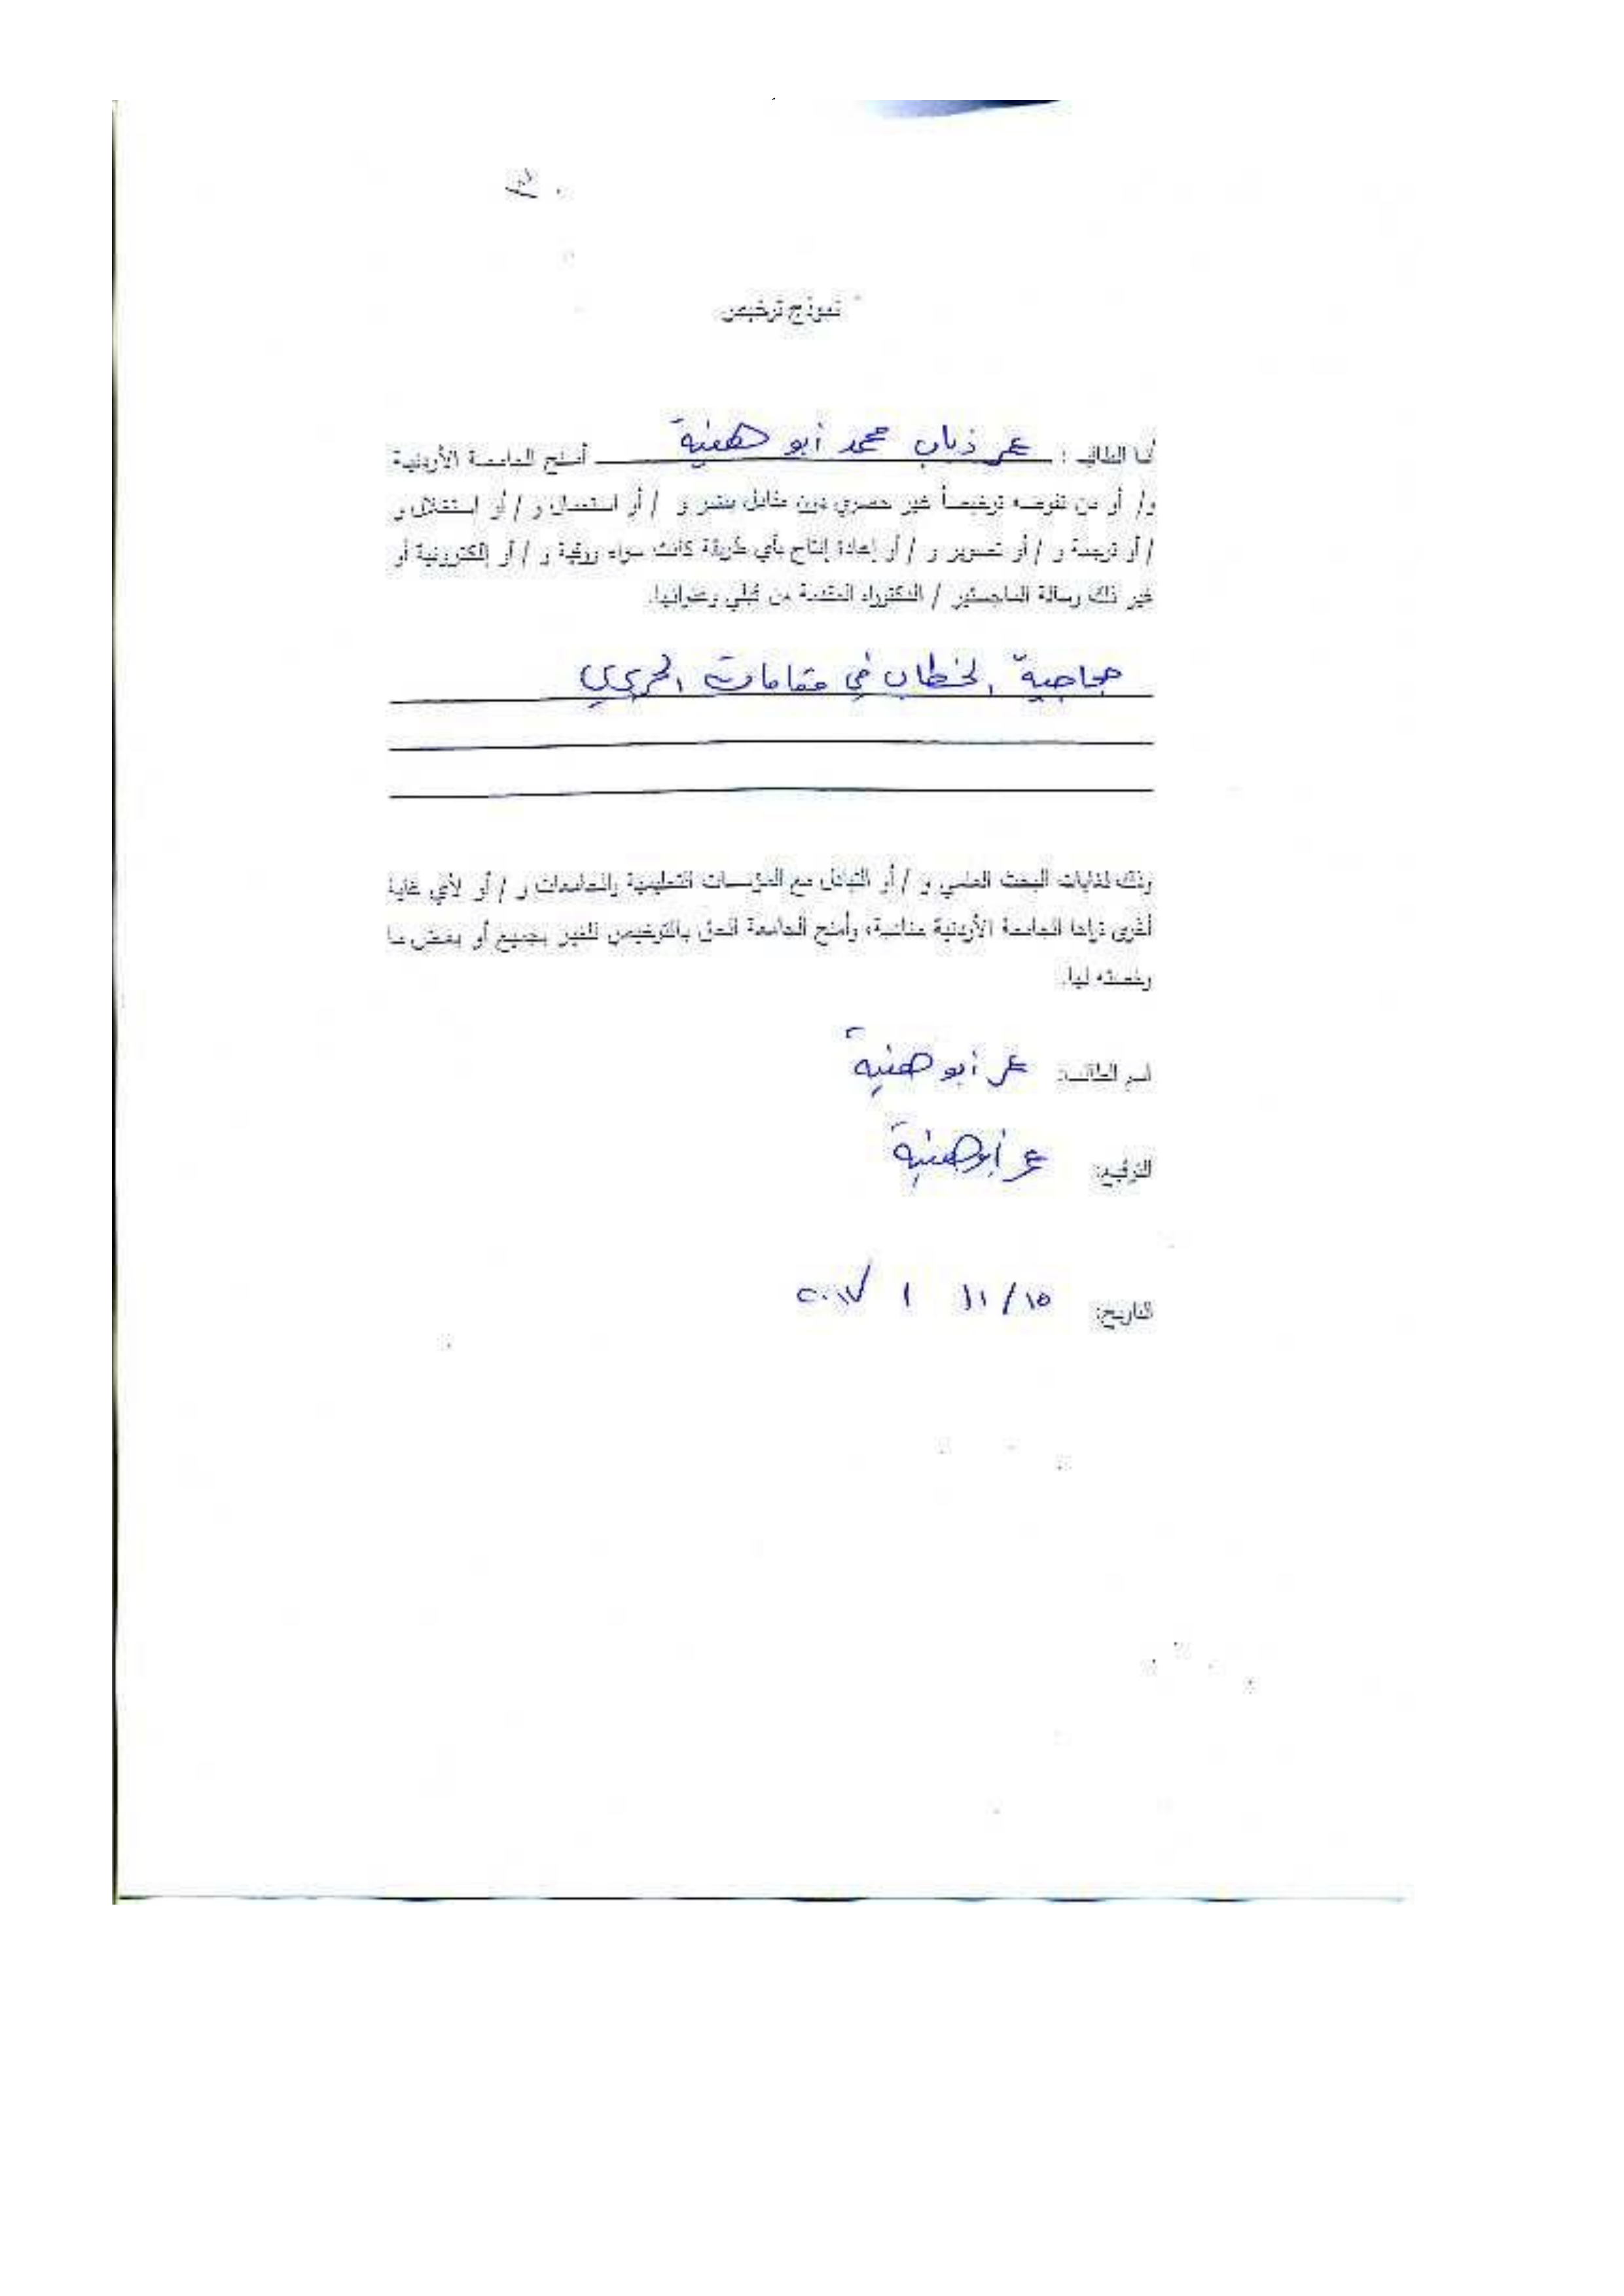 نموذج ترخيص
أنا الطالب : عمر ذياب محمد أبو هنية أمنح الجامعة الأردنية
و/ أو من تفوضه ترخيصاً غير حصري دون مقابل بنشر و / أو استعمال و / أو استغلال و
/ أو ترجمة و / أو تصوير و / أو إعادة إنتاج بأي طريقة كانت سواء ورقية و / أو إلكترونية أو
غير ذلك رسالة الماجستير / الدكتوراه المقدمة من قبلي وعنوانها.
حجاجية الخطاب في مقامات الحريري
وذلك لغايات البحث العلمي و / أو التبادل مع المؤسسات التعليمية والجامعات و / أو لأي غاية
أخرى تراها الجامعة الأردنية مناسبة، وأمنح الجامعة الحق بالترخيص للغير بجميع أو بعض ما
رخصته لها.
اسم الطالب: عمر أبو هنية
التوقيع: عمر أبو هنية
التاريخ: ١٥ / ١١ / ٢٠١٧